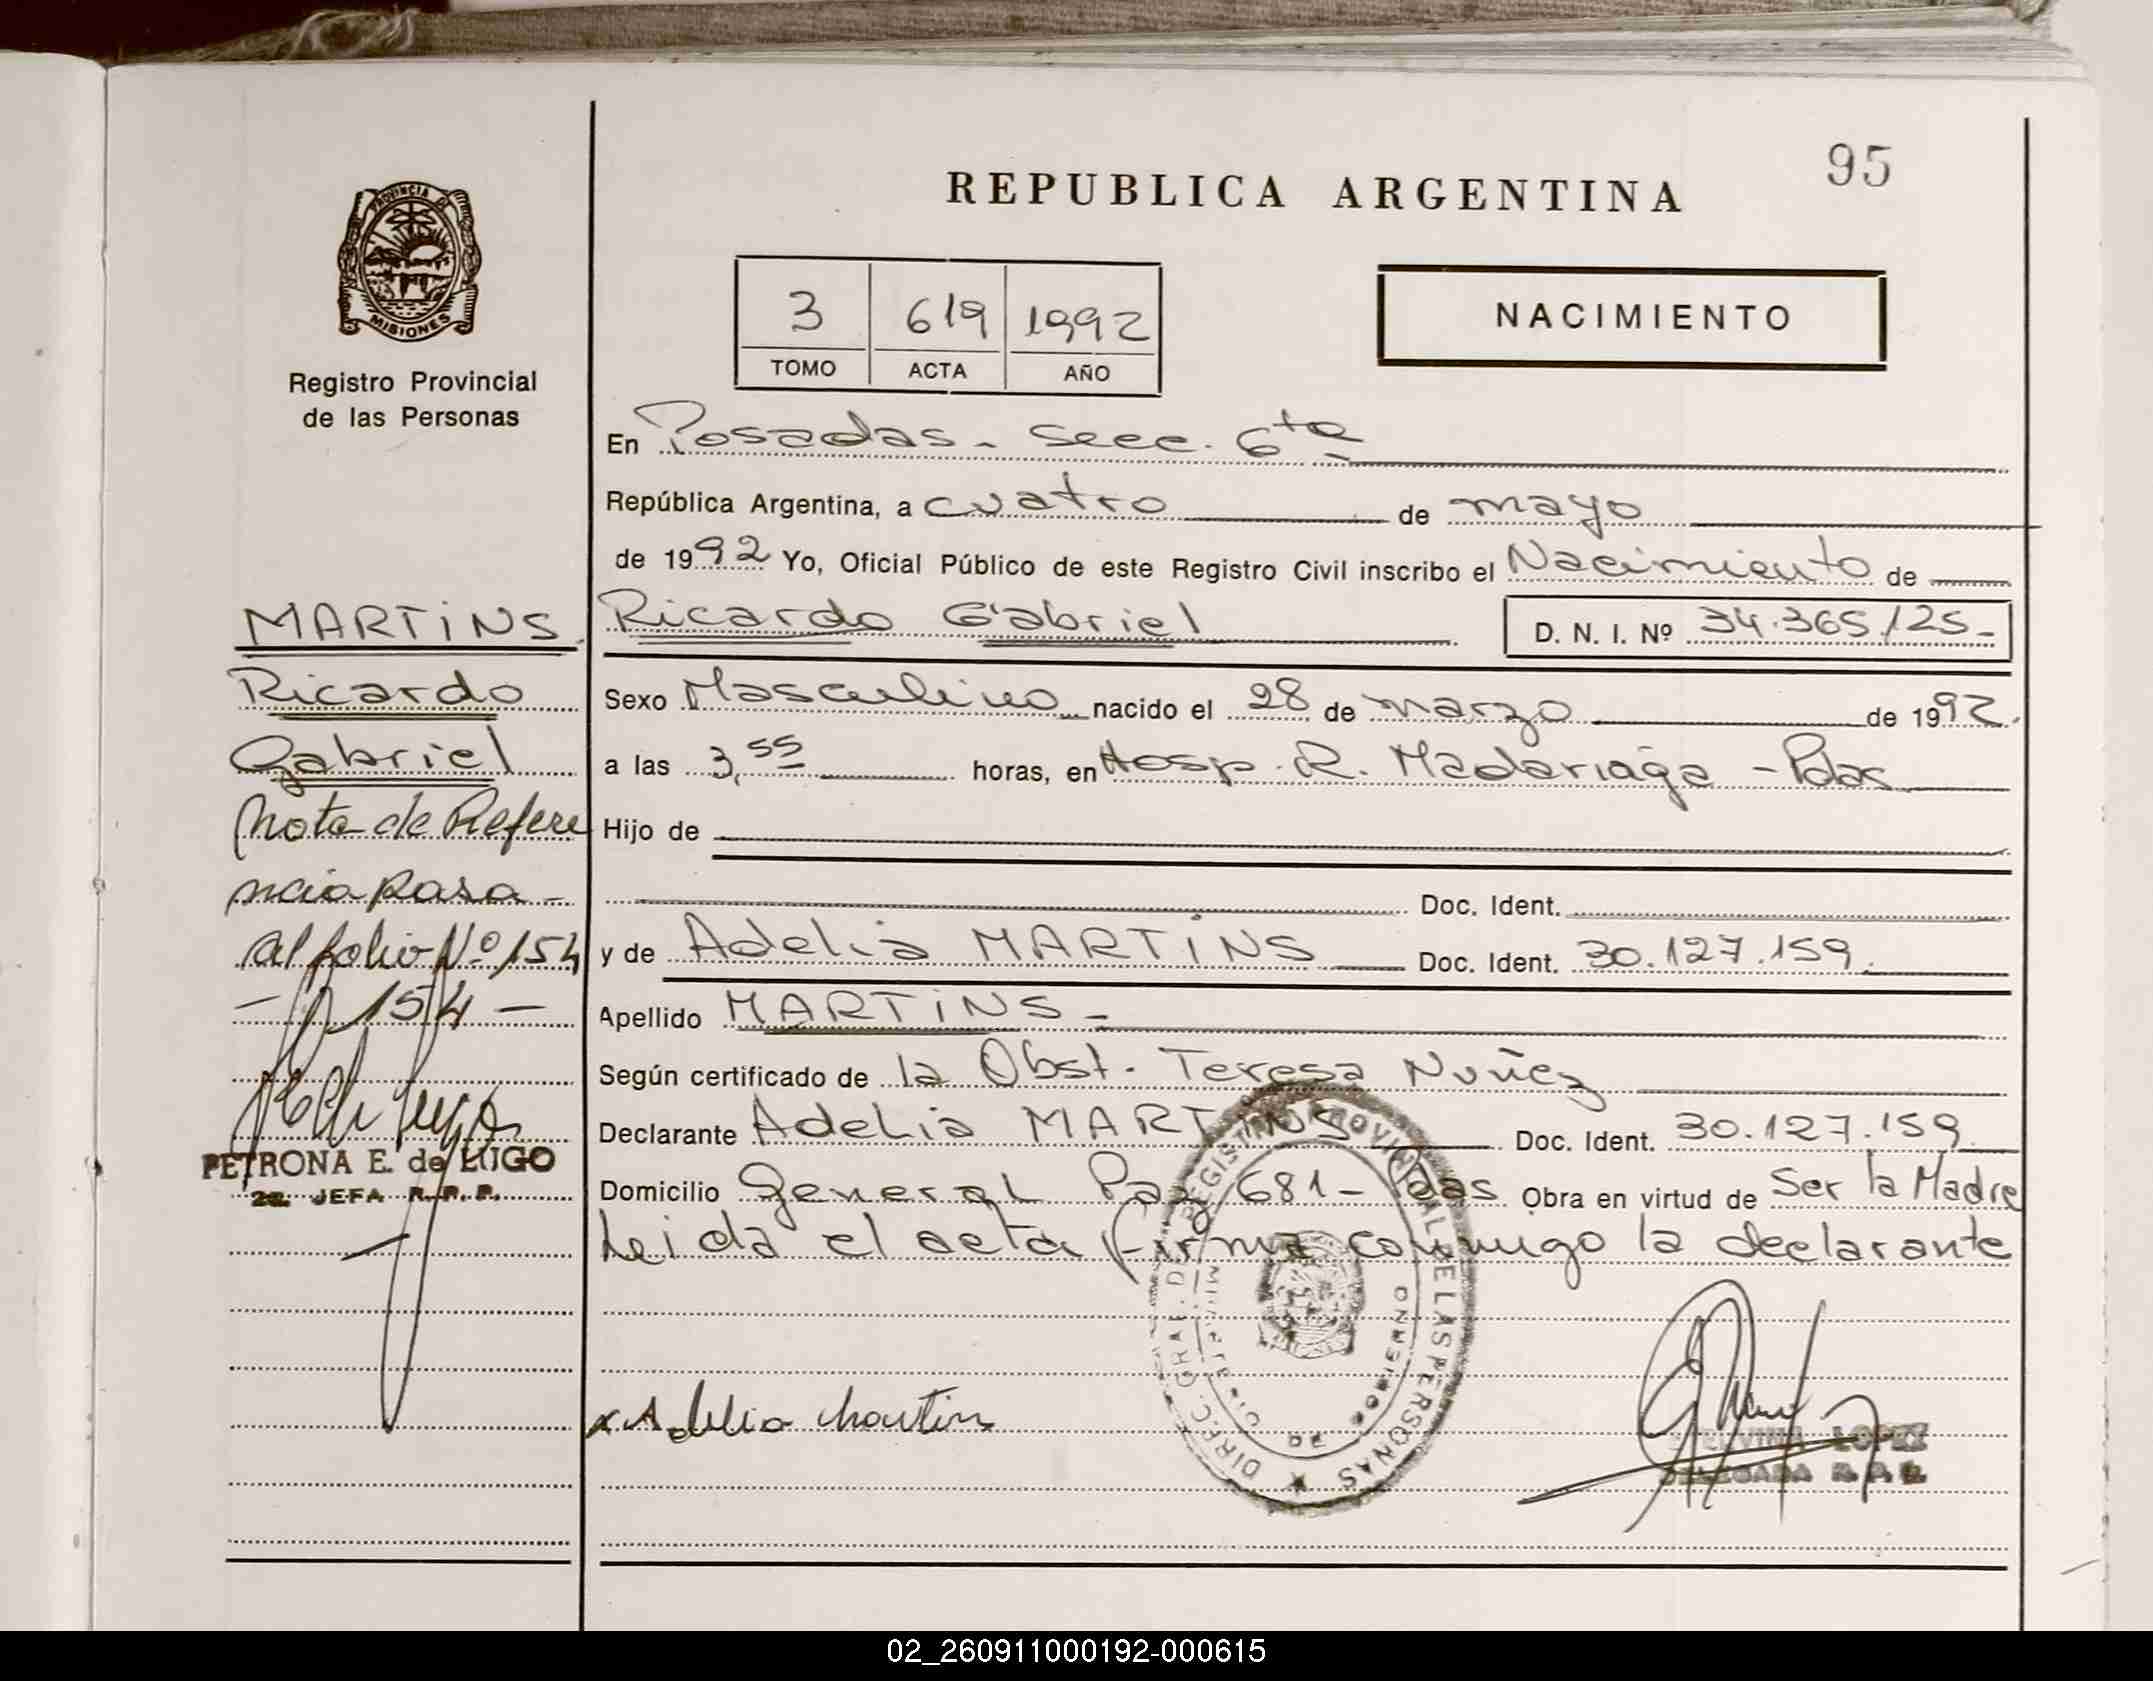 95
REPUBLICA ARGENTINA
PROVINCIA DE
MISIONES
Registro Provincial
de las Personas
3 619 1992
TOMO ACTA AÑO
NACIMIENTO
En Posadas - Secc. 6ta
República Argentina, a cuatro de mayo
de 1992 Yo, Oficial Público de este Registro Civil inscribo el Nacimiento de
Ricardo Gabriel D. N. I. Nº 34.365.125-
Sexo Masculino nacido el 28 de marzo de 1992.
a las 3,55 horas, en Hosp. R. Madariaga - Pdas
Hijo de
Doc. Ident.
y de Adelia MARTiNS Doc. Ident. 30.127.159.
Apellido MARTiNS -
Según certificado de la Obst. Teresa Nuñez
Declarante Adelia MARTiNS Doc. Ident. 30.127.159
Domicilio General Paz 681 - Pdas Obra en virtud de Ser la Madre
Leida el acta firma conmigo la declarante
x Adelia Martins
LOPEZ
DELEGADA R. P. P.
DIREC. GRAL. DEL REGISTRO PROVINCIAL DE LAS PERSONAS
MINISTERIO DE GOBIERNO
MARTiNS
Ricardo
Gabriel
Nota de Refere
ncia pasa -
al folio Nº 154
- 154 -
PETRONA E. de LUGO
2a. JEFA R. P. P.
02_260911000192-000615